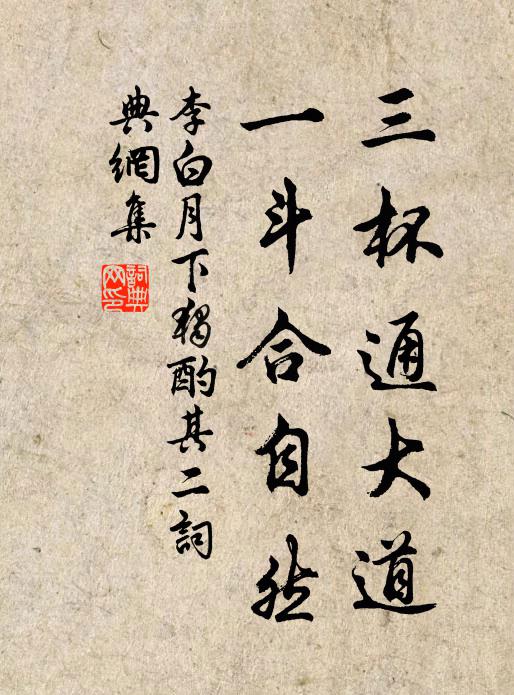 三杯通大道
一斗合自然
李白月下獨酌其二詞
典網集
詞典
网印